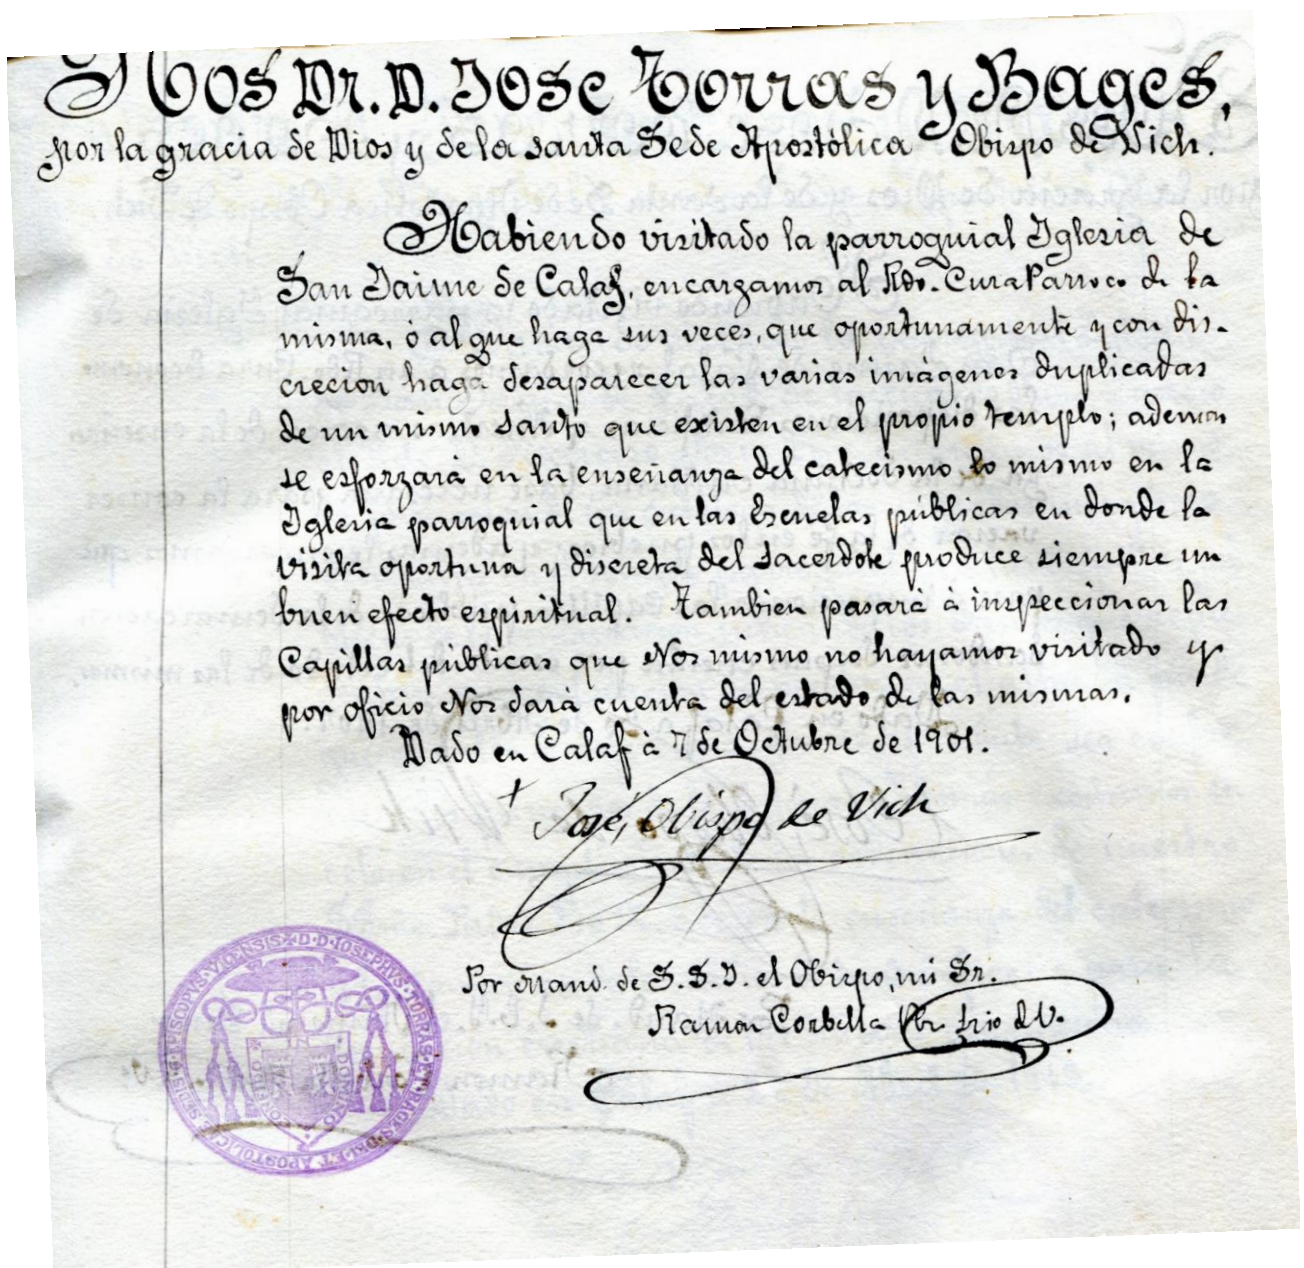 Nos Dr. D. Jose Torras y Bages,
por la gracia de Dios y de la santa Sede Apostólica Obispo de Vich.
Habiendo visitado la parroquial Iglesia de
San Jaime de Calaf, encargamos al Rdo. Cura Párroco de la
misma, ó al que haga sus veces, que oportunamente y con dis-
crecion haga desaparecer las varias imágenes duplicadas
de un mismo santo que existen en el propio templo; ademas
se esforzará en la enseñanza del catecismo lo mismo en la
Iglesia parroquial que en las Escuelas públicas en donde la
visita oportuna y discreta del sacerdote produce siempre un
buen efecto espiritual. Tambien pasará á inspeccionar las
Capillas públicas que Nos mismo no hayamos visitado y
por oficio Nos dará cuenta del estado de las mismas.
Dado en Calaf á 7 de Octubre de 1901.
+ José, Obispo de Vich
Por mand. de S. S. I. el Obispo, mi Sr.
Ramon Corbella Pbr. Srio
D. D. IOSEPHVS TORRAS ET BAGES DEI ET APOSTOLICÆ SEDIS G. EPISCOPVS VICENSIS